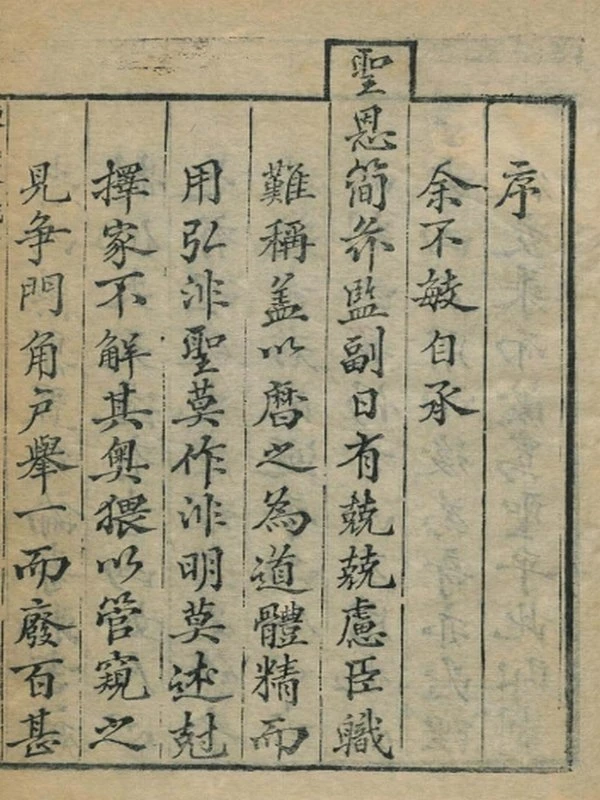 序
余不敏自承
聖恩簡畀監副日有兢兢慮臣軄
難稱盖以曆之為道體精而
用弘非聖莫作非明莫述尅
擇家不解其奧猥以管窺之
見爭門角戶舉一而廢百甚